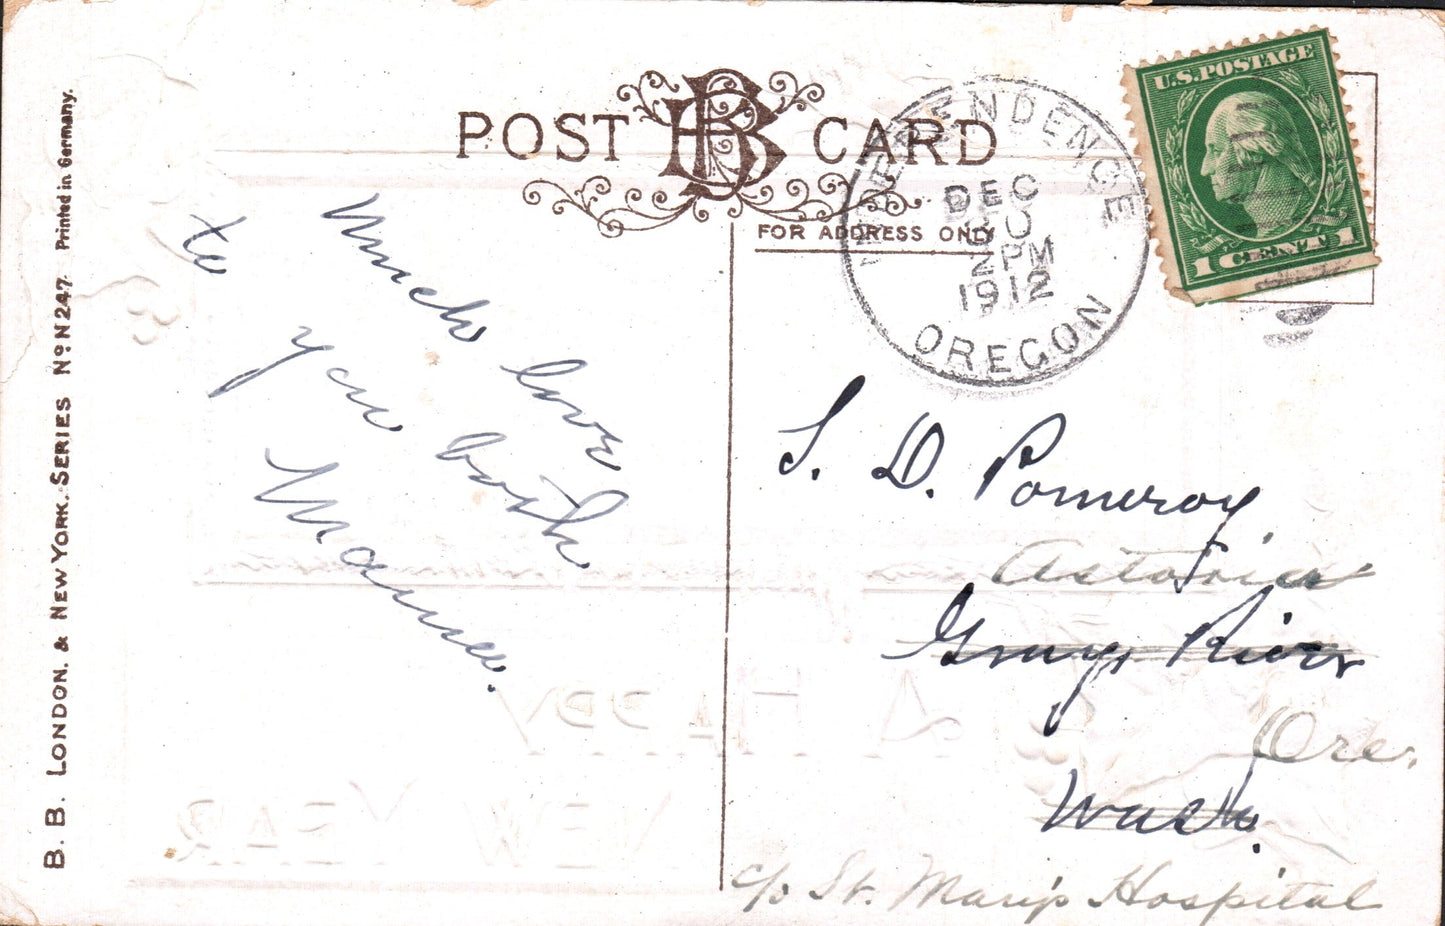 POST CARD
FOR ADDRESS ONLY
INDEPENDENCE
DEC
30
2PM
1912
OREGON
U.S. POSTAGE
1 CENT 1
B. B. LONDON. & NEW YORK. SERIES No N 247. Printed in Germany.
Much love
to you both
Mamie.
S. D. Pomeroy
Astoria
Grays River
Ore.
Wash.
c/o St. Mary's Hospital
A HAPPY
NEW YEAR